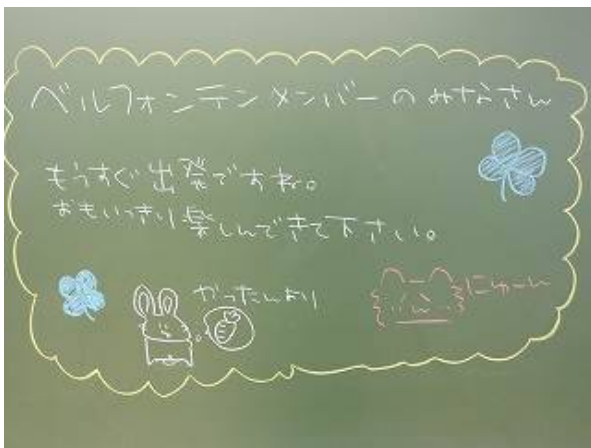 ベルフォンテンメンバーのみなさん
もうすぐ出発ですね。
おもいっきり楽しんできて下さい。
かったんより
にゅーん